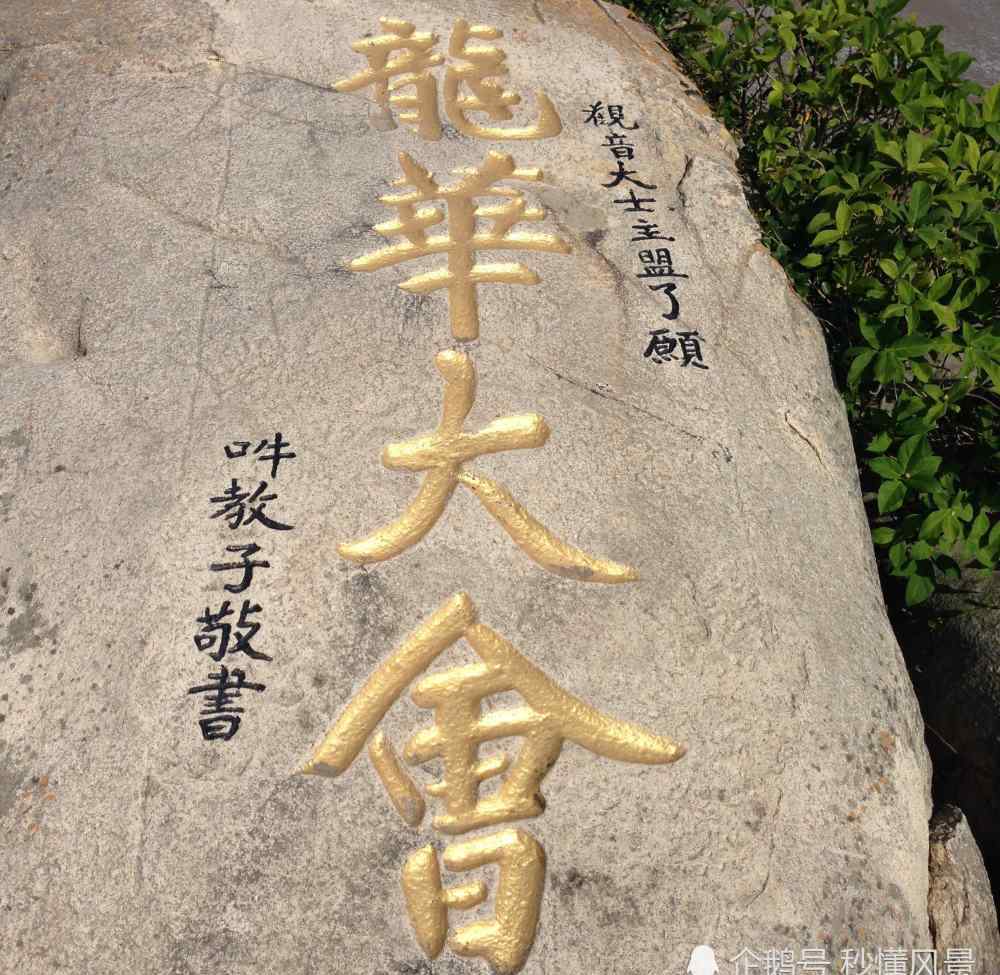 觀音大士主盟了願
龍華大會
吽教子敬書
企鹅号 秒懂风景